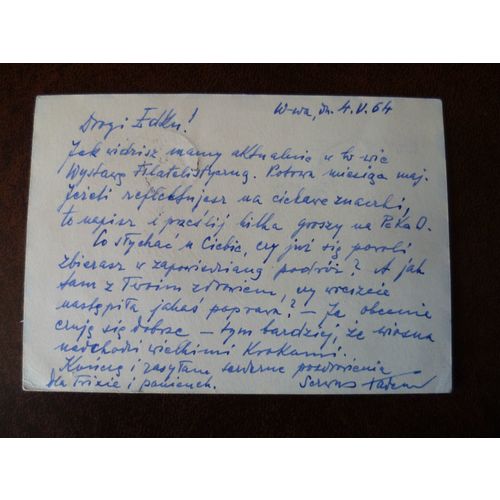 W-wa, dn. 4.V.64
Drogi Edku!
Jak widzisz mamy aktualnie w
Wystawę Filatelistyczną. Potrwa miesiąc maj.
Jeżeli reflektujesz na ciekawe znaczki,
to napisz i prześlij kilka groszy na PeKaO.
Co słychać u Ciebie, czy już się powoli
zbierasz w zapowiedzianą podróż? A jak
tam z Twoim zdrowiem, czy wreszcie
nastąpiła jakaś poprawa? – Ja obecnie
czuję się dobrze – tym bardziej, że wiosna
nadchodzi wielkimi krokami.
Kończę i zasyłam serdeczne pozdrowienia
dla i panienek. Serwus